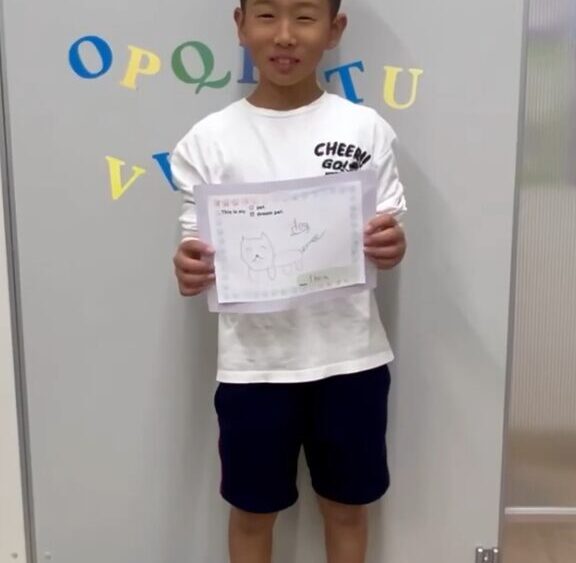 OPQ TU
V
CHEER!!
GO!
This is my pet.
dream pet.
dog